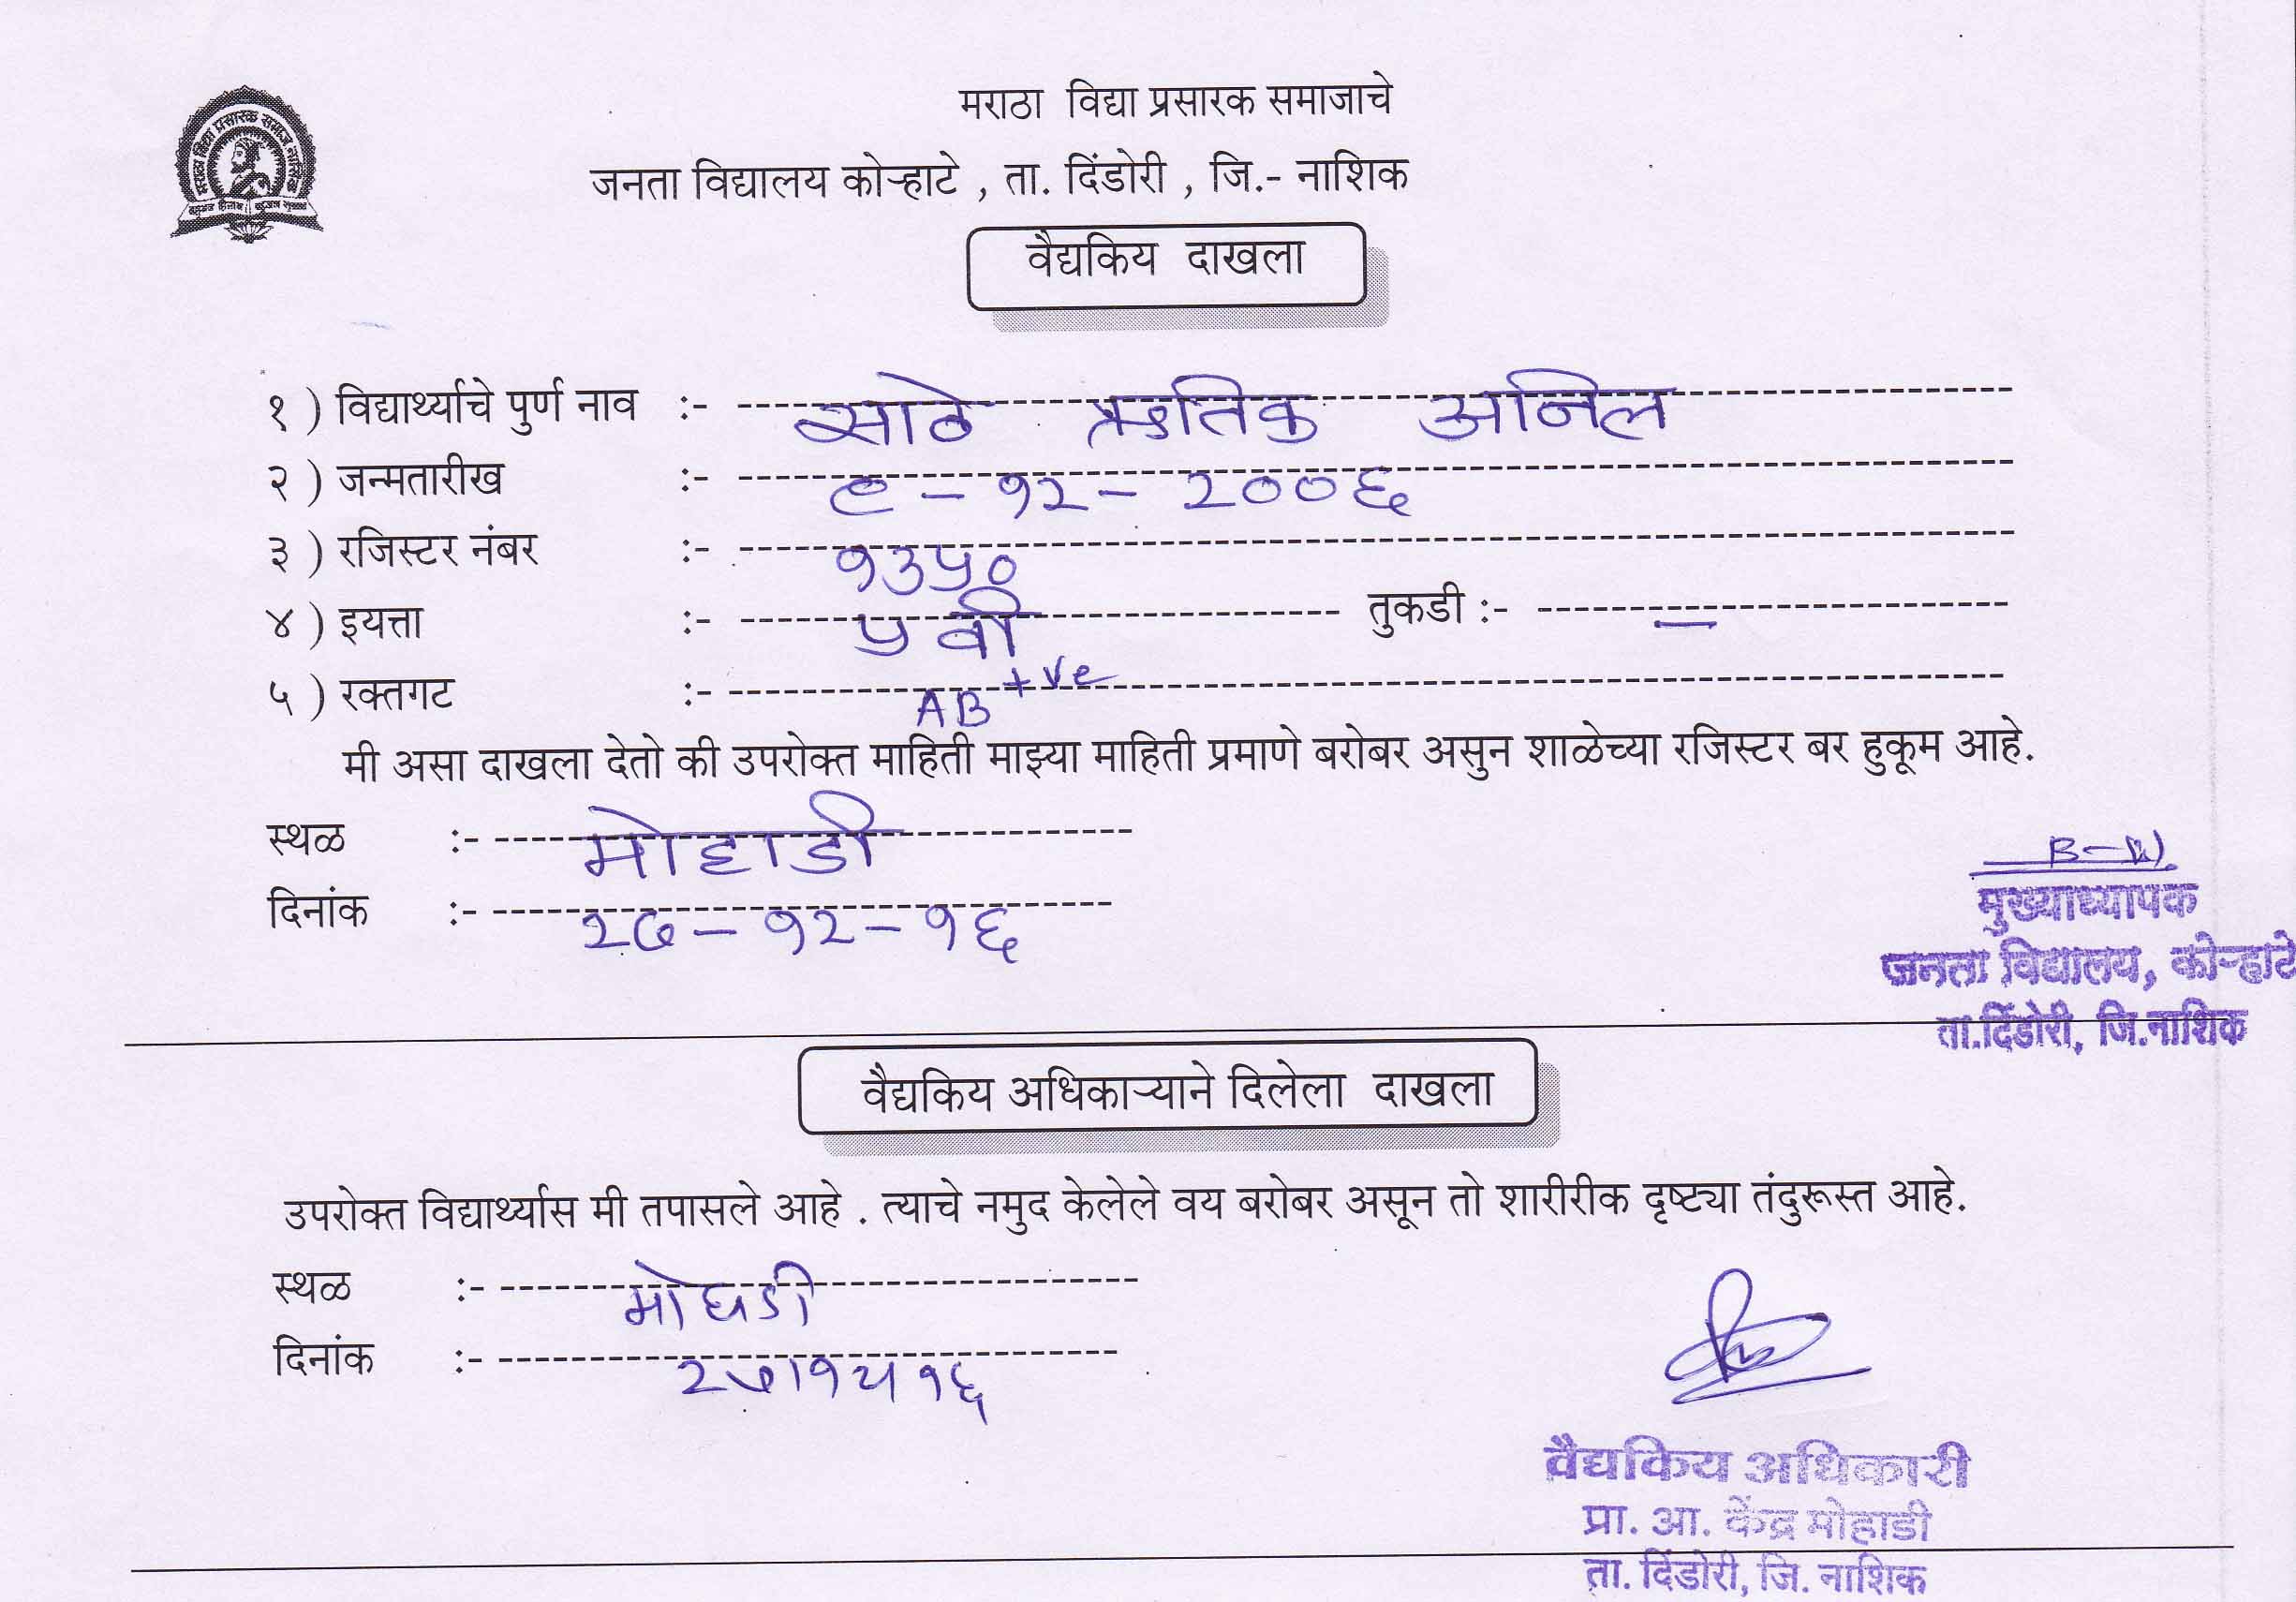 मराठा विद्या प्रसारक समाज नाशिक
मराठा विद्या प्रसारक समाजाचे
जनता विद्यालय कोऱ्हाटे , ता. दिंडोरी , जि.- नाशिक
वैद्यकिय दाखला
१ ) विद्यार्थ्याचे पुर्ण नाव :- साठे ऋतिक अनिल
२ ) जन्मतारीख :- ९ - १२ - २००६
३ ) रजिस्टर नंबर :- १३५०
४ ) इयत्ता :- ५ वी तुकडी :- —
५ ) रक्तगट :- AB +ve
मी असा दाखला देतो की उपरोक्त माहिती माझ्या माहिती प्रमाणे बरोबर असुन शाळेच्या रजिस्टर बर हुकूम आहे.
स्थळ :- मोहाडी
दिनांक :- २७ - १२ - १६
मुख्याध्यापक
जनता विद्यालय, कोऱ्हाटे
ता.दिंडोरी, जि.नाशिक
वैद्यकिय अधिकाऱ्याने दिलेला दाखला
उपरोक्त विद्यार्थ्यास मी तपासले आहे . त्याचे नमुद केलेले वय बरोबर असून तो शारीरीक दृष्ट्या तंदुरूस्त आहे.
स्थळ :- मोहाडी
दिनांक :- २७।१२।१६
वैद्यकिय अधिकारी
प्रा. आ. केंद्र मोहाडी
ता. दिंडोरी, जि. नाशिक